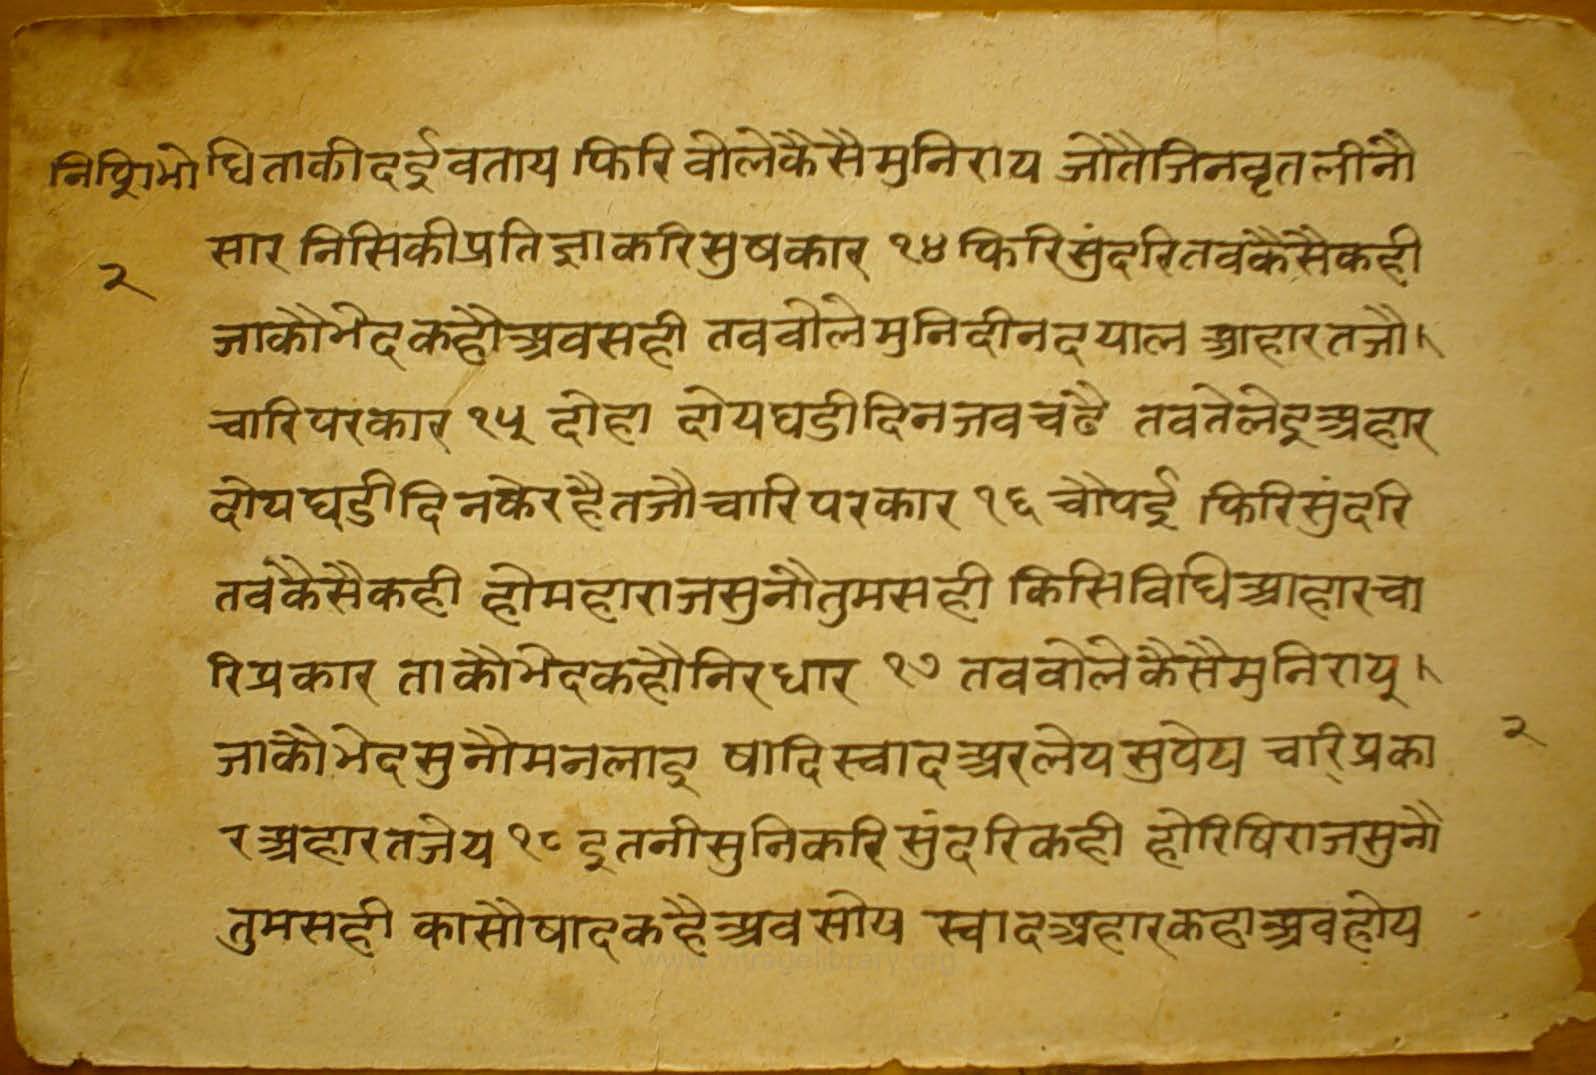 धि ताकी दई वताय फिरि वोले कैसै मुनिराय जोतै जिनवृत लीनौ
सार निसिकी प्रतिज्ञा करि सुषकार १४ फिरि सुंदरि तव कैसै कही
२
जाकौ भेद कहौ अव सही तव वोले मुनि दीन दयाल आहार तजौ।
चारि परकार १५ दोहा दोय घडी दिन जव चंढै तव ते लेइ अहार
दोय घडी दिन केर है तजौ चारि परकार १६ चौपई फिरि सुंदरि
तव कैसै कही हो महाराज सुनौ तुम सही किसि विधि आहार चा
रि प्रकार ताकौ भेद कहौ निरधार १७ तव वोले कैसै मुनिराय्।
जाकौ भेद सुनौ मन लाइ षादि स्वाद अर लेय सुपेय चारि प्रका
२
र अहार तजेय १८ इतनी सुनि करि सुंदरि कही हो रिषिराज सुनौ
तुम सही कासौ षाद कहै अव सोय स्वाद अहार कहा अव होय
www.vitragelibrary.org